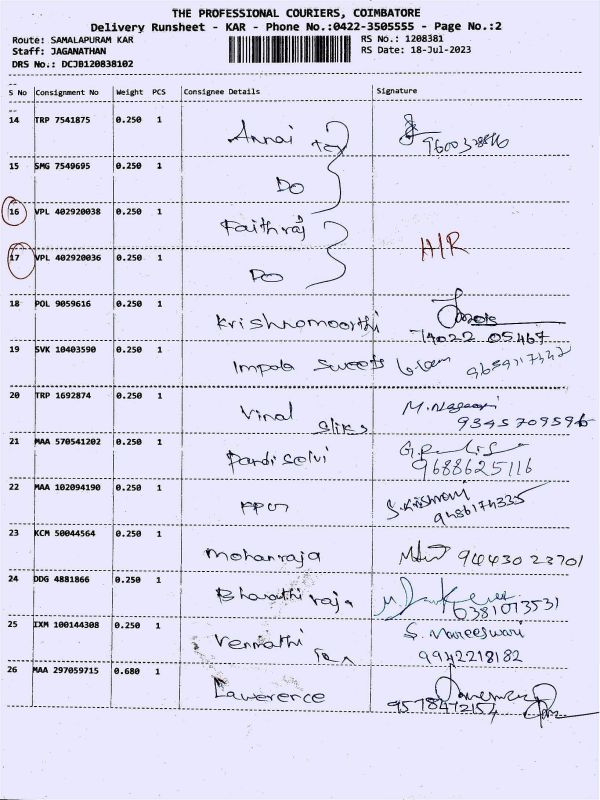 THE PROFESSIONAL COURIERS, COIMBATORE
Delivery Runsheet - KAR - Phone No.:0422-3505555 - Page No.:2
Route: SAMALAPURAM KAR RS No.: 1208381
Staff: JAGANATHAN RS Date: 18-Jul-2023
DRS No.: DCJB120838102
S No Consignment No Weight PCS Consignee Details Signature
14 TRP 7541875 0.250 1 Annai Tex
15 SMG 7549695 0.250 1 Do
16 VPL 402920038 0.250 1 Faithraj
17 VPL 402920036 0.250 1 Do H/R
18 POL 9059616 0.250 1 Krishnamoorthi
74022 05467
19 SVK 10403590 0.250 1 Impala Sweets
20 TRP 1692874 0.250 1 Vimal
9345709596
21 MAA 570541202 0.250 1 Pandiselvi
9688625116
22 MAA 102094190 0.250 1 S.Krishnani
9486174335
23 KCM 50044564 0.250 1 Mohanraja 94430 23701
24 DDG 4881866 0.250 1 Bharathiraja
6381073531
25 IXM 100144308 0.250 1 Vennathi S. Mareeswari
9942218182
26 MAA 297059715 0.680 1 Lawerence
9578472154